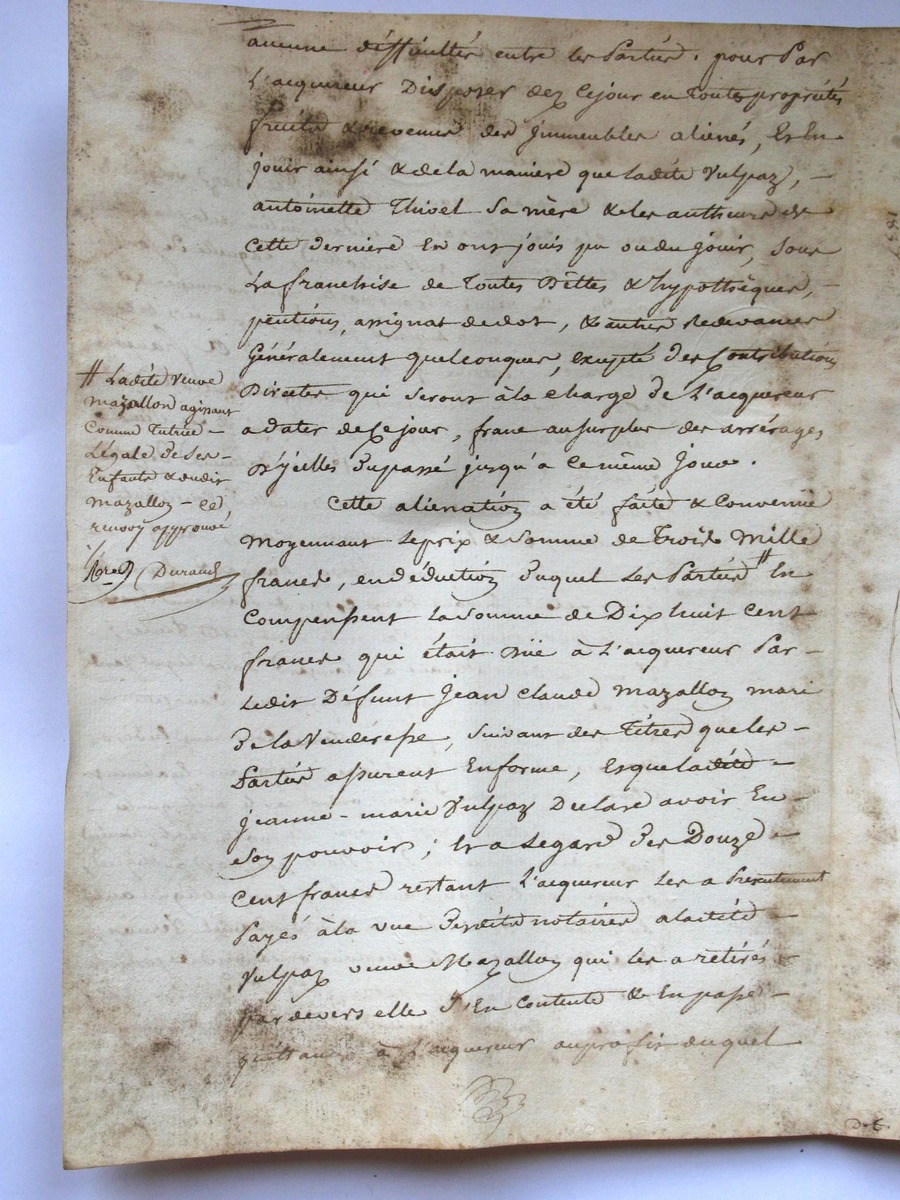 aucune difficultés entre les Parties. pour Par
L'acquereur Disposer dez cejour en Toutes propriétés
fruits & revenus des Jmmeubles aliénés, Et En
jouir ainsi & de la maniere que Ladite Vulpaz, -
antoinette Thivel Sa mère & les autheurs de
Cette derniere En ont jouis pu ou du jouir, Sous
La franchise de Toutes Dèttes & hypothèques, -
pentions, assignat de dot, & autres Redevances
Généralement quelconques, excepté des Contributions
Directes qui seront à la charge de L'acquereur
a dater de Ce jour, franc au surplus des arrérages
D'jcelles Dupassé jusqu'a Ce même Jour.
Cette aliénation a été faite & Convenue
Moyennant Le prix & Somme de Trois Mille
francs, en déduction Duquel Les Parties # En
Compensent La Somme de Dix huit Cent
francs qui était Düe à L'acquereur Par -
Ledit Défunt Jean Claude Mazallon mari
De la Venderesse, Suivant des Titres que les -
Parties assurent En forme, Et que ladite -
Jeanne-marie Vulpaz Declare avoir En -
Son pouvoir; Et a Legard Des Douze -
Cent francs restant L'acquereur Les a Presentement
Payés à la vue Desdits notaires a ladite -
Vulpaz veuve Mazallon qui les a retirés -
pardevers elle S'En Contente & En passe -
quittance à L'acquereur au profit duquel
# Ladite Veuve
Mazallon agissant
Comme Tutrice -
Légale De Ses -
Enfants & dudit
Mazallon - Ce
renvoy approuvé
Durand